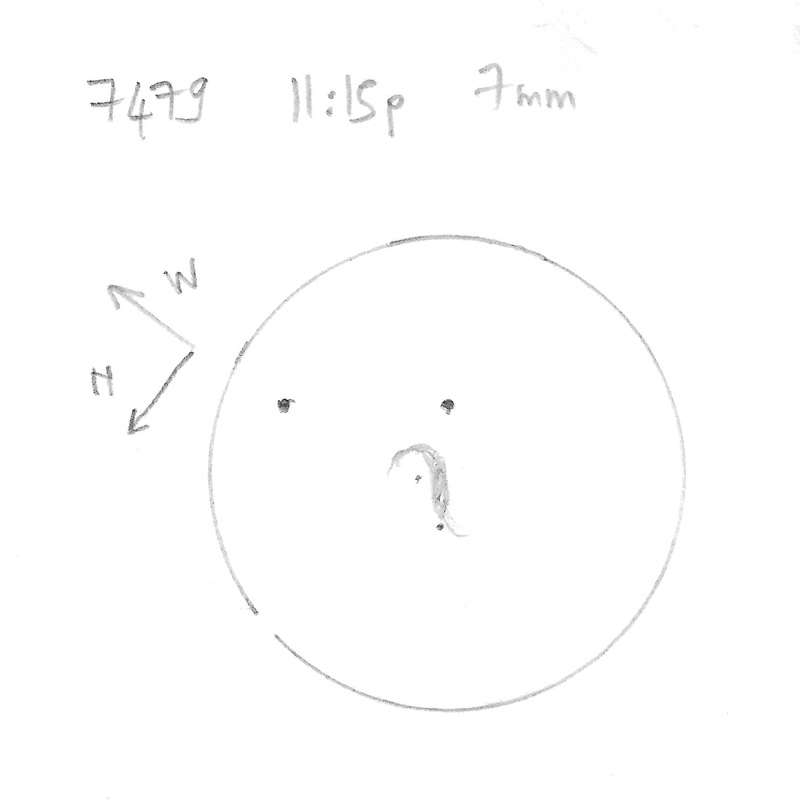 7479 11:15p 7mm
W
N